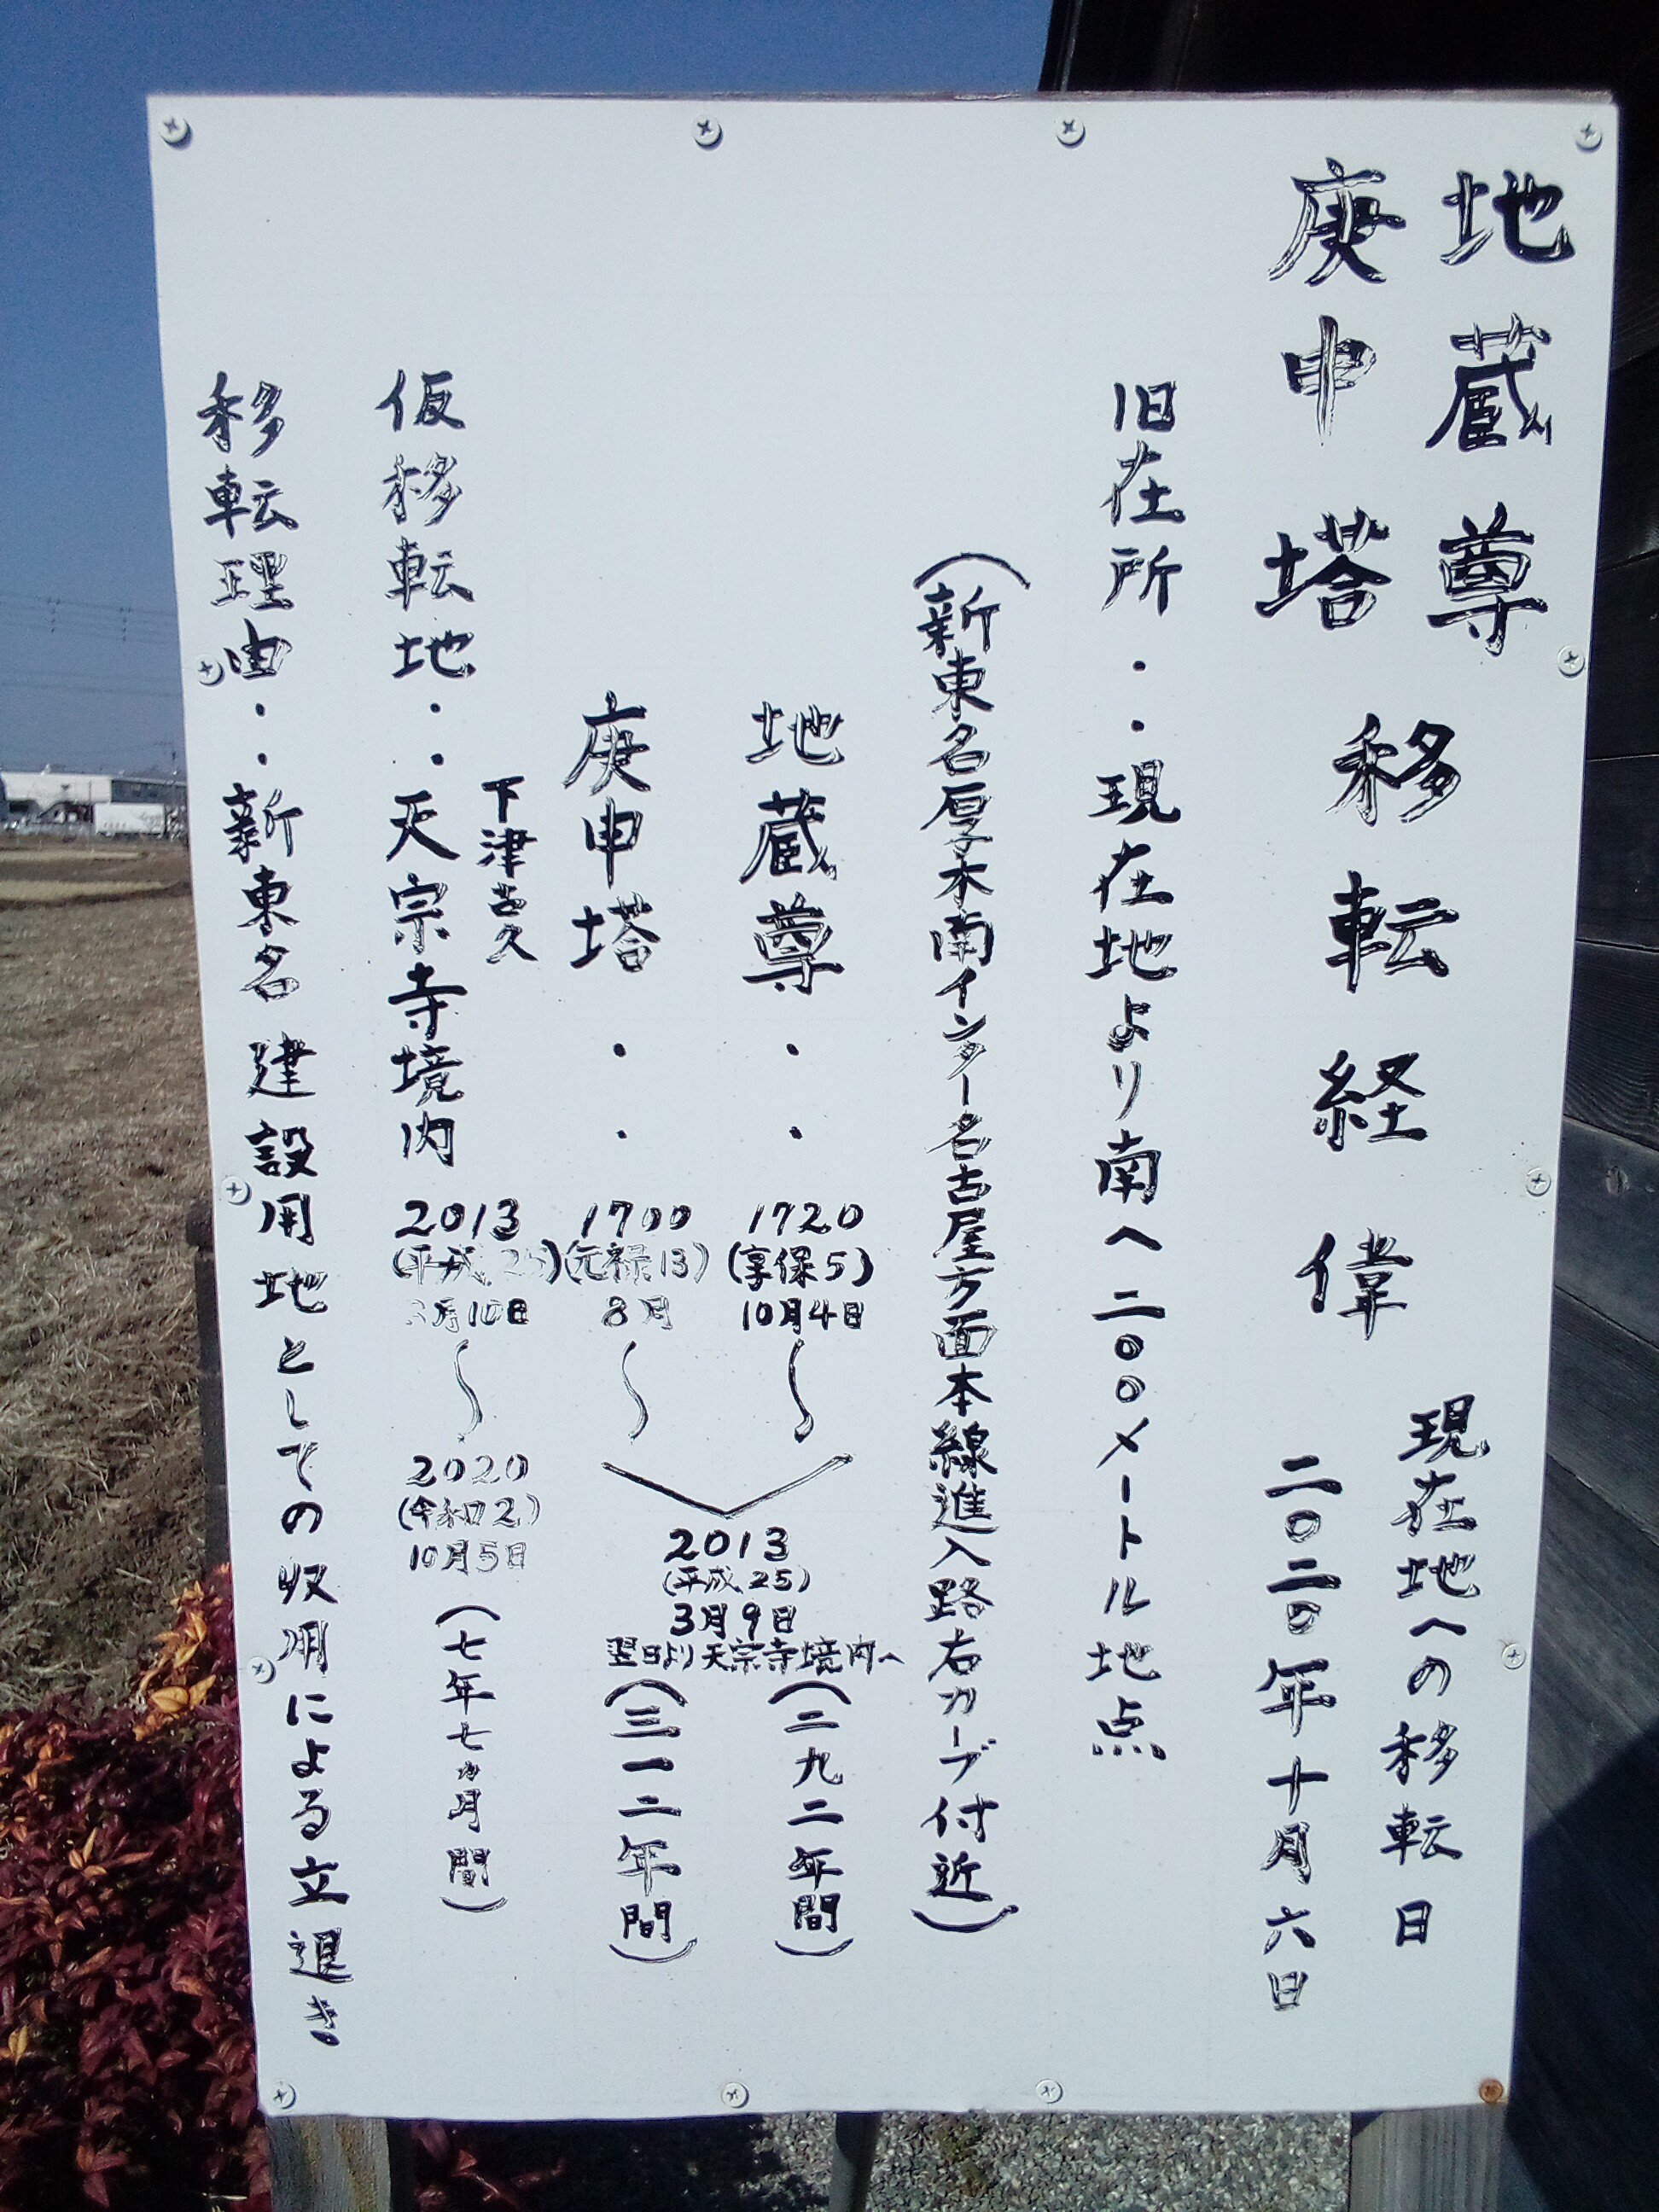 地蔵尊
庚申塔
移転経偉
現在地への移転日
二〇二〇年十月六日
旧在所・・現在地より南へ二〇〇メートル地点
(新東名厚木南インター名古屋方面本線進入路右カーブ付近)
地蔵尊・・1720
(享保5)
10月4日
〜
庚申塔・・1700
(元禄13)
8月
〜
2013
(平成25)
3月9日
翌日より天宗寺境内へ
(二九二年間)
(三一二年間)
下津古久
仮移転地・・天宗寺境内
2013
(平成25)
3月10日
〜
2020
(令和2)
10月5日
(七年七ヵ月間)
移転理由・・新東名建設用地としての収用による立退き